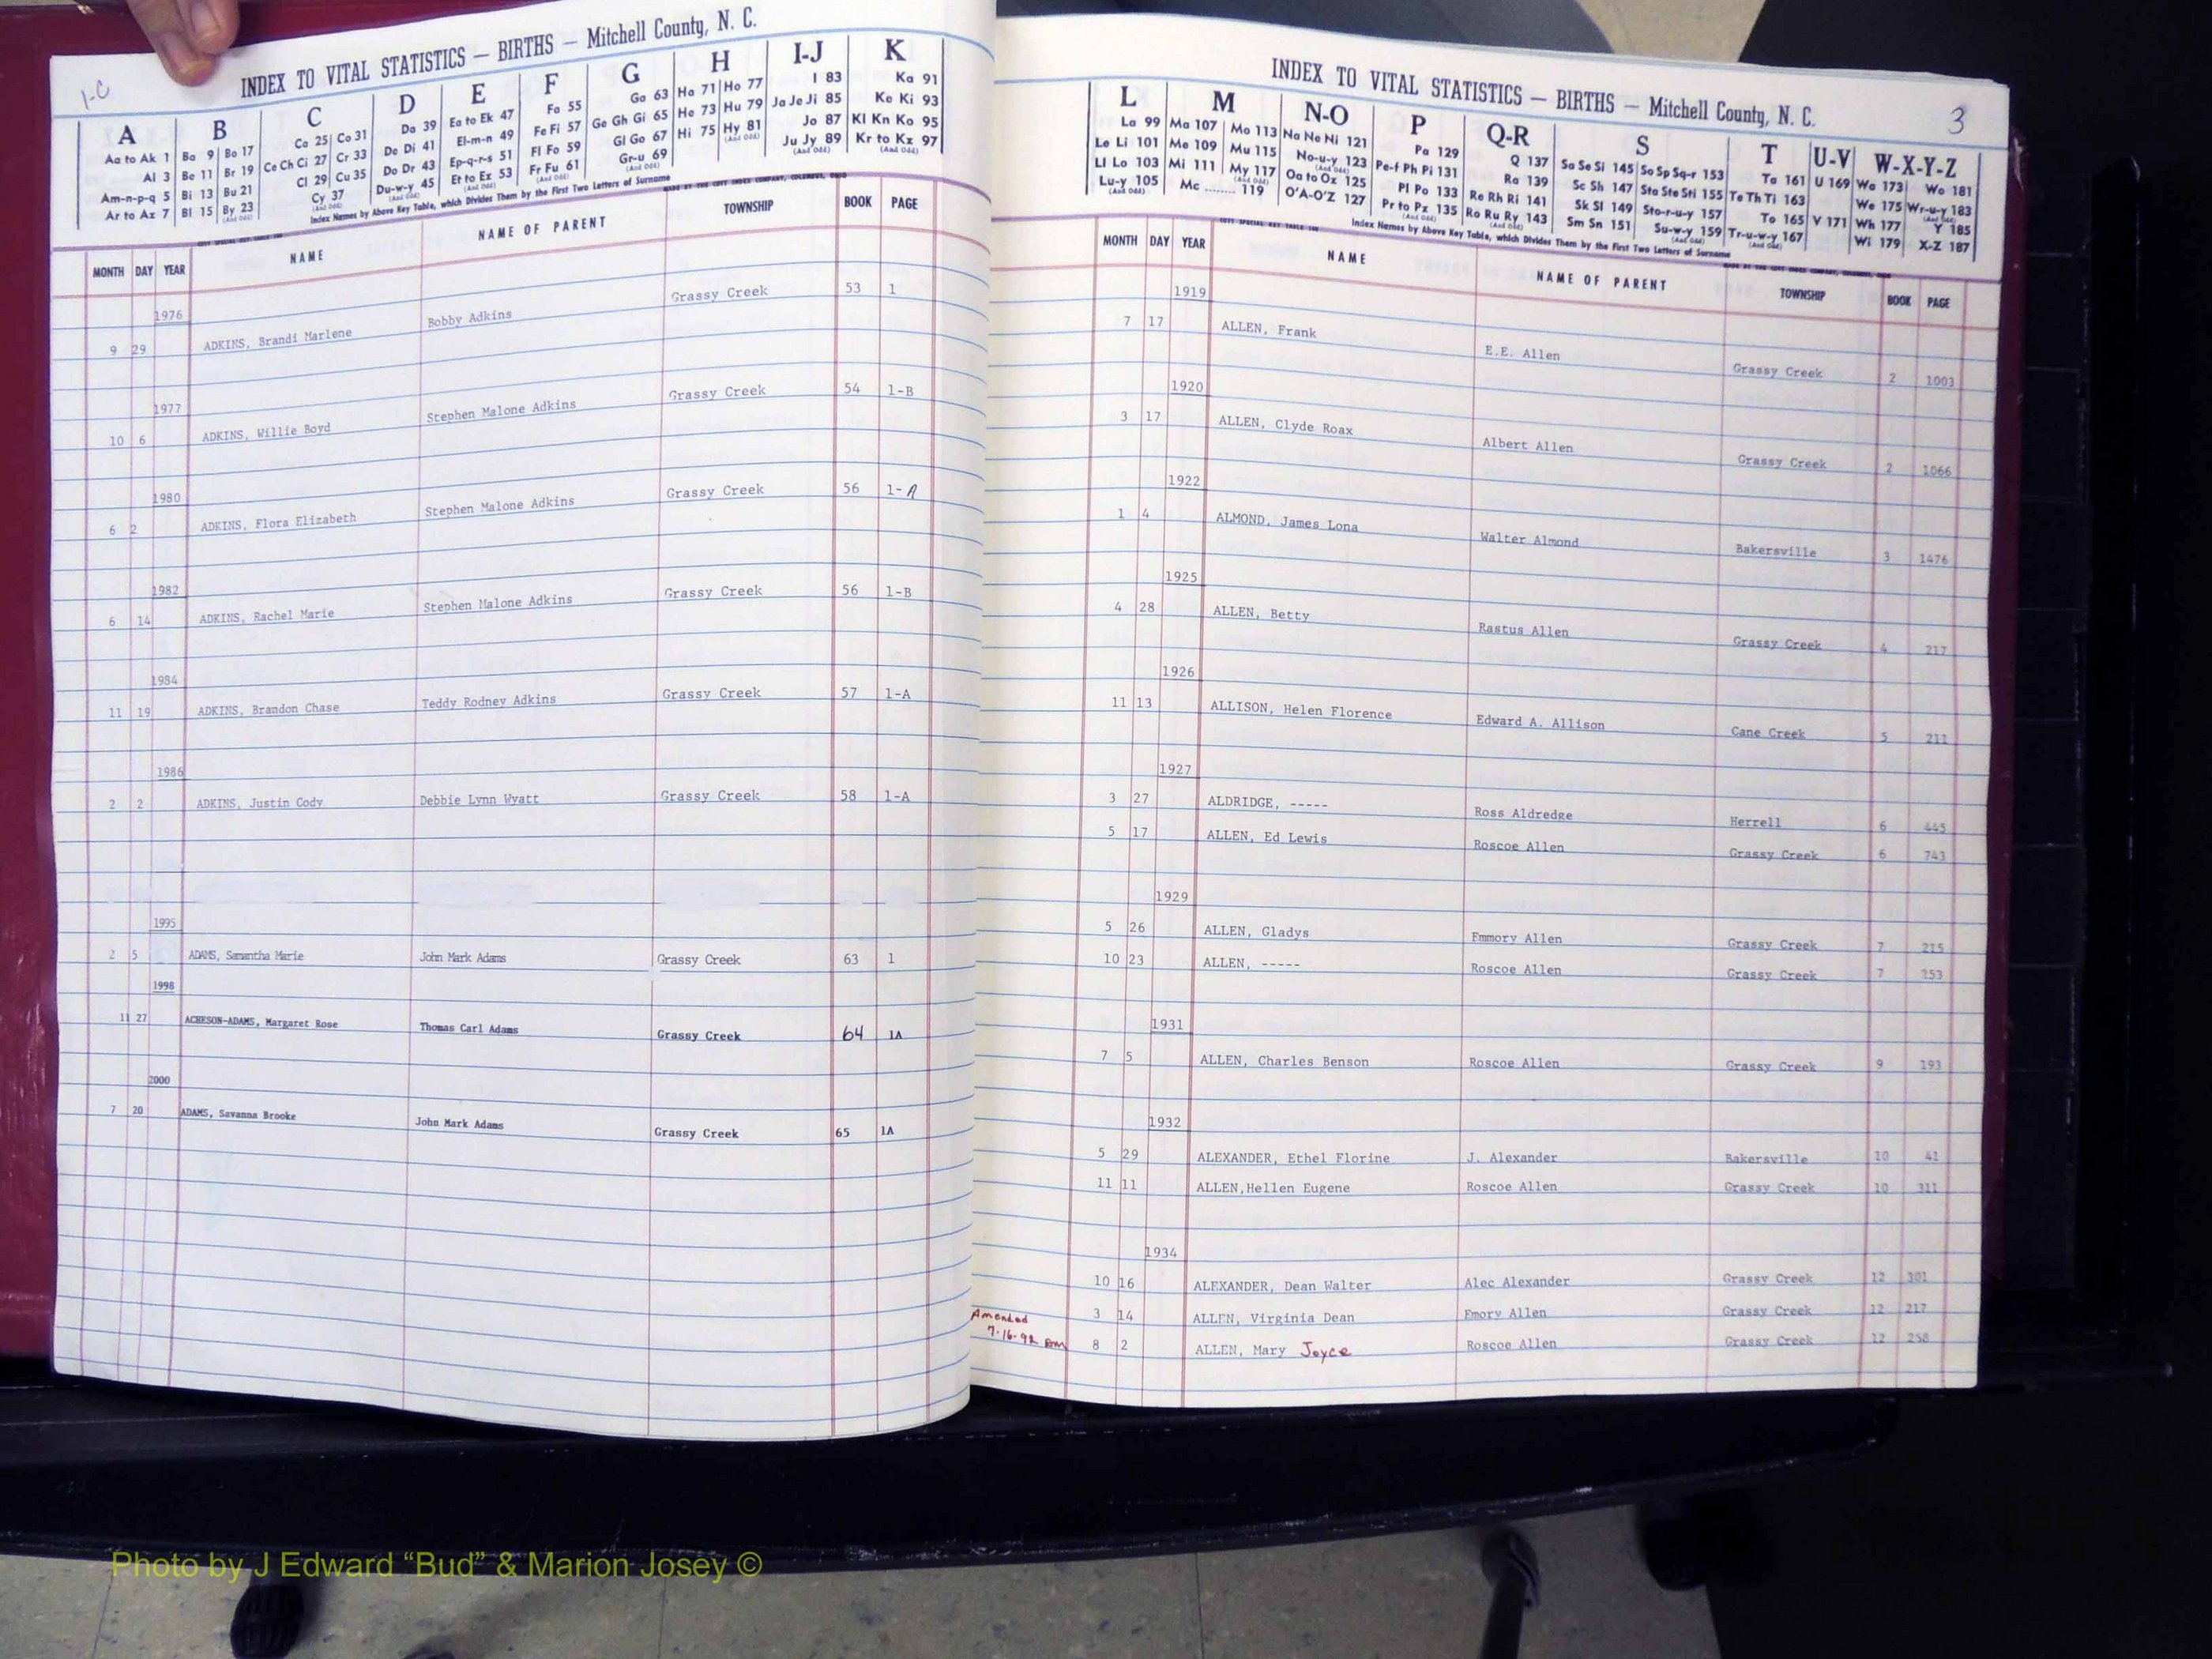 1-C
INDEX TO VITAL STATISTICS — BIRTHS — Mitchell County, N. C.
A B C D E F G H I-J K
Aa to Ak 1 Ba 9 Bo 17 Ca 25 Co 31 Da 39 Ea to Ek 47 Fa 55 Ga 63 Ha 71 Ho 77 I 83 Ka 91
Al 3 Be 11 Br 19 Ce Ch Ci 27 Cr 33 De Di 41 El-m-n 49 Fe Fi 57 Ge Gh Gi 65 He 73 Hu 79 Ja Je Ji 85 Ke Ki 93
Am-n-p-q 5 Bi 13 Bu 21 Cl 29 Cu 35 Do Dr 43 Ep-q-r-s 51 Fl Fo 59 Gl Go 67 Hi 75 Hy 81 Jo 87 Kl Kn Ko 95
Ar to Az 7 Bl 15 By 23 Cy 37 Du-w-y 45 Et to Ez 53 Fr Fu 61 Gr-u 69 Ju Jy 89 Kr to Kz 97
Index Names by Above Key Table, which Divides Them by the First Two Letters of Surname
MONTH DAY YEAR NAME NAME OF PARENT TOWNSHIP BOOK PAGE
1976
9 29 ADKINS, Brandi Marlene Bobby Adkins Grassy Creek 53 1
1977
10 6 ADKINS, Willie Boyd Stephen Malone Adkins Grassy Creek 54 1-B
1980
6 2 ADKINS, Flora Elizabeth Stephen Malone Adkins Grassy Creek 56 1-A
1982
6 14 ADKINS, Rachel Marie Stephen Malone Adkins Grassy Creek 56 1-B
1984
11 19 ADKINS, Brandon Chase Teddy Rodney Adkins Grassy Creek 57 1-A
1986
2 2 ADKINS, Justin Cody Debbie Lynn Wyatt Grassy Creek 58 1-A
1995
2 5 ADAMS, Samantha Marie John Mark Adams Grassy Creek 63 1
1998
11 27 ACHESON-ADAMS, Margaret Rose Thomas Carl Adams Grassy Creek 64 1A
2000
7 20 ADAMS, Savanna Brooke John Mark Adams Grassy Creek 65 1A
3
INDEX TO VITAL STATISTICS — BIRTHS — Mitchell County, N. C.
L M N-O P Q-R S T U-V W-X-Y-Z
La 99 Ma 107 Mo 113 Na Ne Ni 121 Pa 129 Q 137 Sa Se Si 145 So Sp Sq-r 153 Ta 161 U 169 Wa 173 Wo 181
Le Li 101 Me 109 Mu 115 No-u-y 123 Pe-f Ph Pi 131 Ra 139 Sc Sh 147 Sta Ste Sti 155 Te Th Ti 163 We 175 Wr-u-y 183
Ll Lo 103 Mi 111 My 117 Oa to Oz 125 Pl Po 133 Re Rh Ri 141 Sk Sl 149 Sto-r-u-y 157 To 165 V 171 Wh 177 Y 185
Lu-y 105 Mc ........ 119 O'A-O'Z 127 Pr to Pz 135 Ro Ru Ry 143 Sm Sn 151 Su-w-y 159 Tr-u-w-y 167 Wi 179 X-Z 187
Index Names by Above Key Table, which Divides Them by the First Two Letters of Surname
MONTH DAY YEAR NAME NAME OF PARENT TOWNSHIP BOOK PAGE
1919
7 17 ALLEN, Frank E.E. Allen Grassy Creek 2 1003
1920
3 17 ALLEN, Clyde Roax Albert Allen Grassy Creek 2 1066
1922
1 4 ALMOND, James Lona Walter Almond Bakersville 3 1476
1925
4 28 ALLEN, Betty Rastus Allen Grassy Creek 4 217
1926
11 13 ALLISON, Helen Florence Edward A. Allison Cane Creek 5 211
1927
3 27 ALDRIDGE, ----- Ross Aldredge Herrell 6 445
5 17 ALLEN, Ed Lewis Roscoe Allen Grassy Creek 6 743
1929
5 26 ALLEN, Gladys Emmory Allen Grassy Creek 7 215
10 23 ALLEN, ----- Roscoe Allen Grassy Creek 7
1931
7 5 ALLEN, Charles Benson Roscoe Allen Grassy Creek 9 193
1932
5 29 ALEXANDER, Ethel Florine J. Alexander Bakersville 10 41
11 11 ALLEN,Hellen Eugene Roscoe Allen Grassy Creek 10 311
1934
10 16 ALEXANDER, Dean Walter Alec Alexander Grassy Creek 12 301
3 14 ALLEN, Virginia Dean Emory Allen Grassy Creek 12 217
Amended
7-16-92
8 2 ALLEN, Mary Joyce Roscoe Allen Grassy Creek 12 258
Photo by J Edward “Bud” & Marion Josey ©